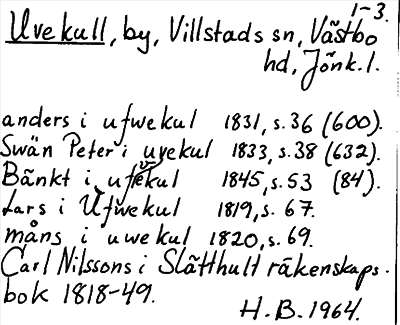 1-3.
Uvekull, by, Villstads sn, Västbo
hd, Jönk.l.
anders i ufwekul 1831, s.36 (600).
Swän Peter i uvekul 1833, s.38 (632).
Bänkt i ufvekul 1845, s.53 (84).
Lars i Ufwekul 1819, s. 67.
måns i uwekul 1820, s.69.
Carl Nilssons i Slätthult räkenskaps-
bok 1818-49.
H.B. 1964.